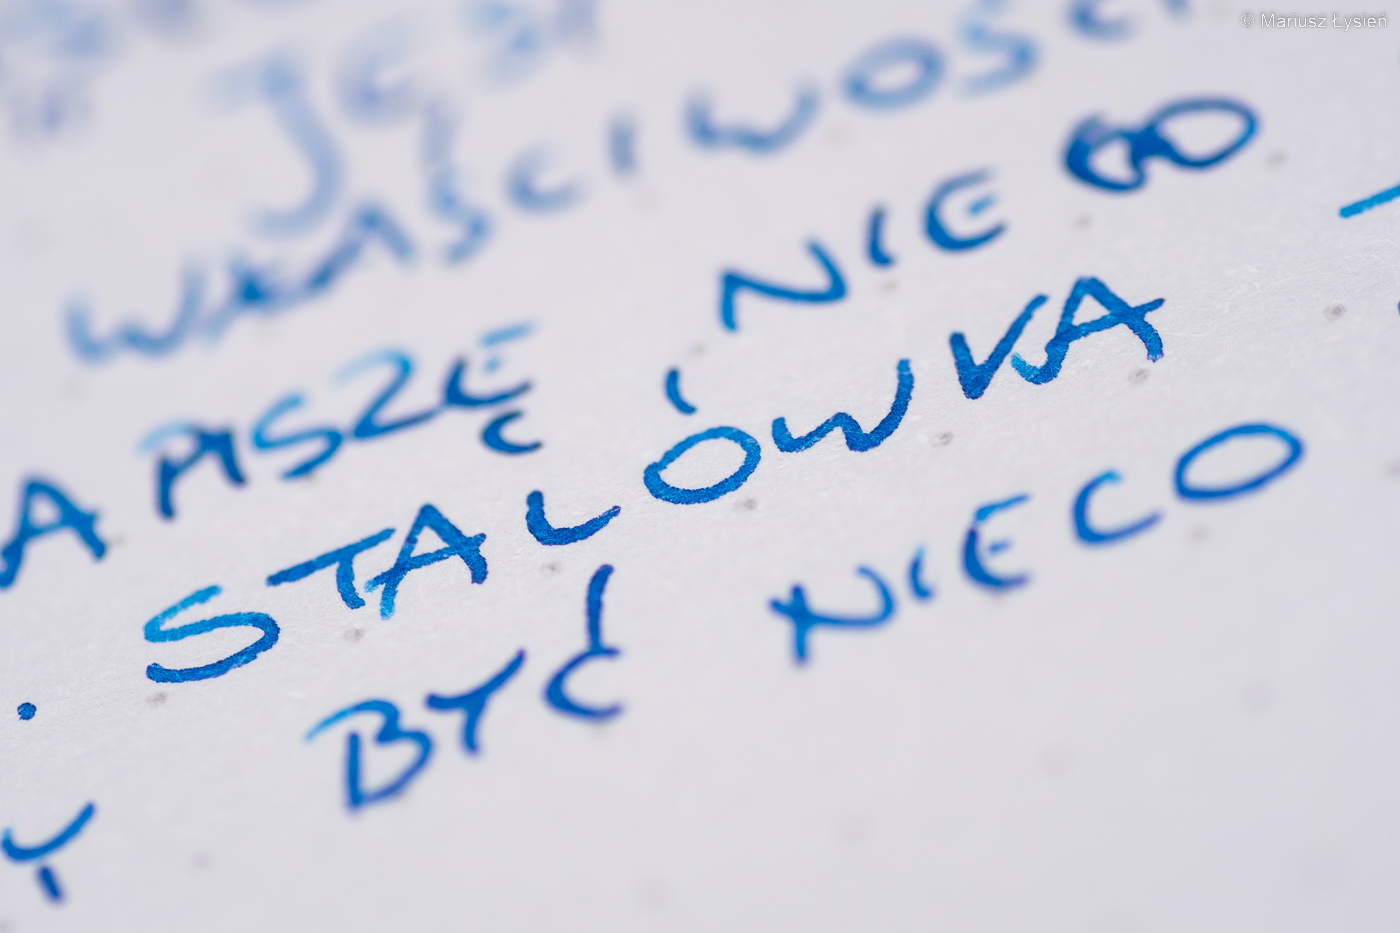 © Mariusz Łysień
JEST
WŁAŚCIWOŚCI
A PISZĘ NIECO
. STALÓWKA
Y BYĆ NIECO